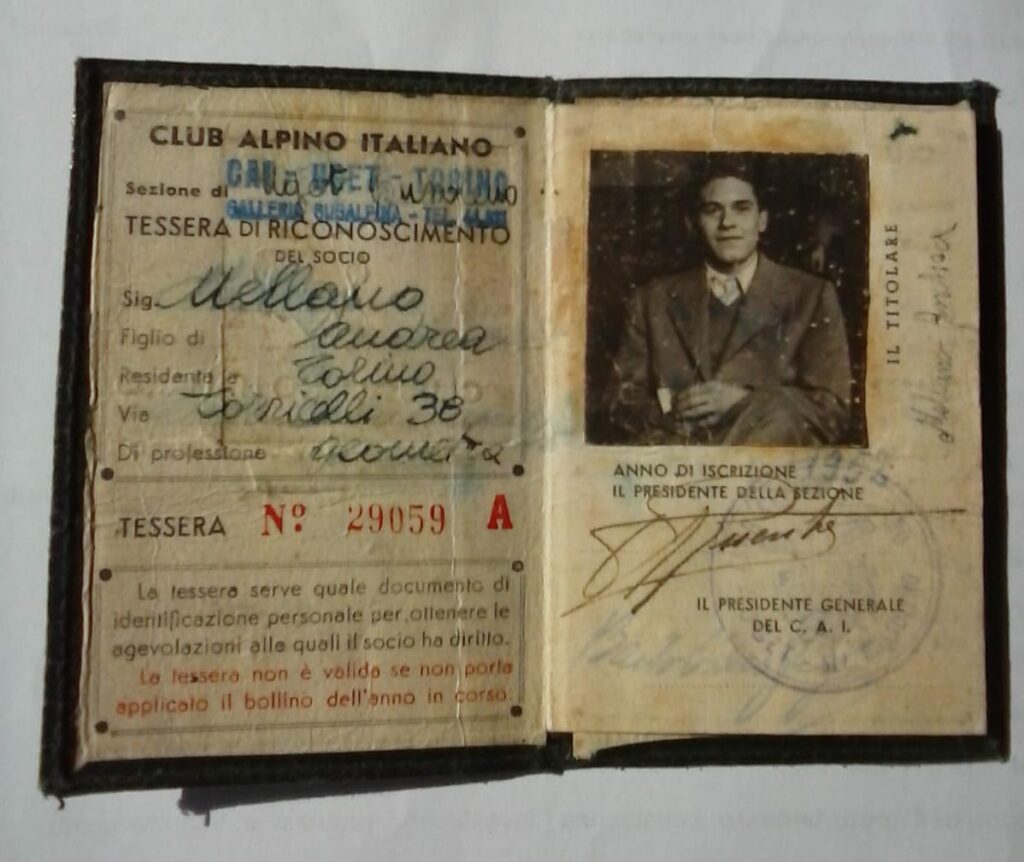 CLUB ALPINO ITALIANO
CAI - UGET - TORINO
Sezione di Uget
GALLERIA SUBALPINA - TEL.
TESSERA DI RICONOSCIMENTO
DEL SOCIO
Sig. Mellano
Figlio di Andrea
Residente a Torino
Via Torricelli 38
Di professione geometra
TESSERA Nº 29059 A
La tessera serve quale documento di
identificazione personale per ottenere le
agevolazioni alle quali il socio ha diritto.
La tessera non è valida se non porta
applicato il bollino dell'anno in corso
IL TITOLARE
Mellano Andrea
ANNO DI ISCRIZIONE 1952
IL PRESIDENTE DELLA SEZIONE
IL PRESIDENTE GENERALE
DEL C. A. I.